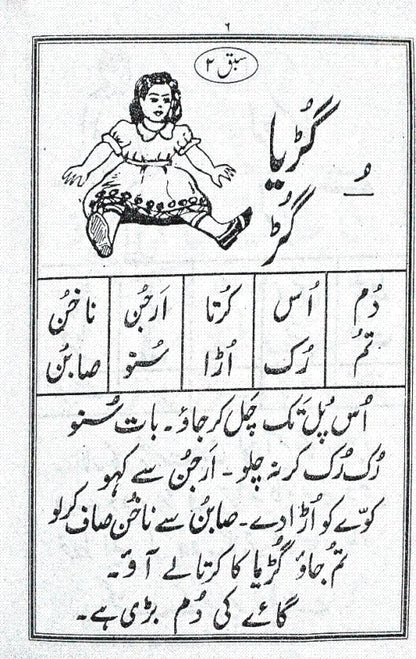 ٦
سبق ۲
گُڑیا
ـُ
گُڑ
دُم اُس کُرتا اَرجُن ناخُن
تُم رُک اُڑا سُنو صابُن
اُس پُل تک چَل کر جاؤ۔ بات سُنو
رُک رُک کر نہ چلو۔ اَرجُن سے کہو
کوّے کو اُڑا دے۔ صابُن سے ناخُن صاف کرلو
تُم جاؤ گُڑیا کا کرتا لے آؤ۔
گائے کی دُم بڑی ہے۔